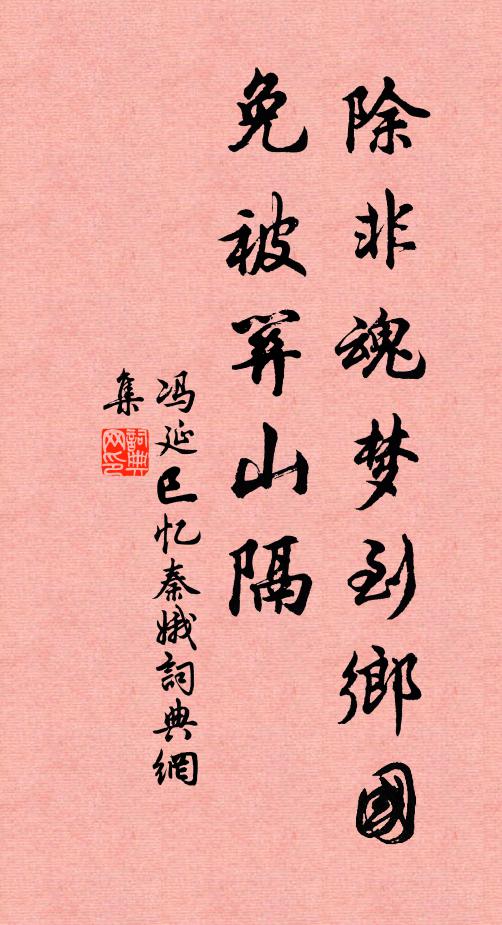 除非魂梦到鄉國
免被关山隔
冯延巳忆秦娥詞典網
集
詞典网印